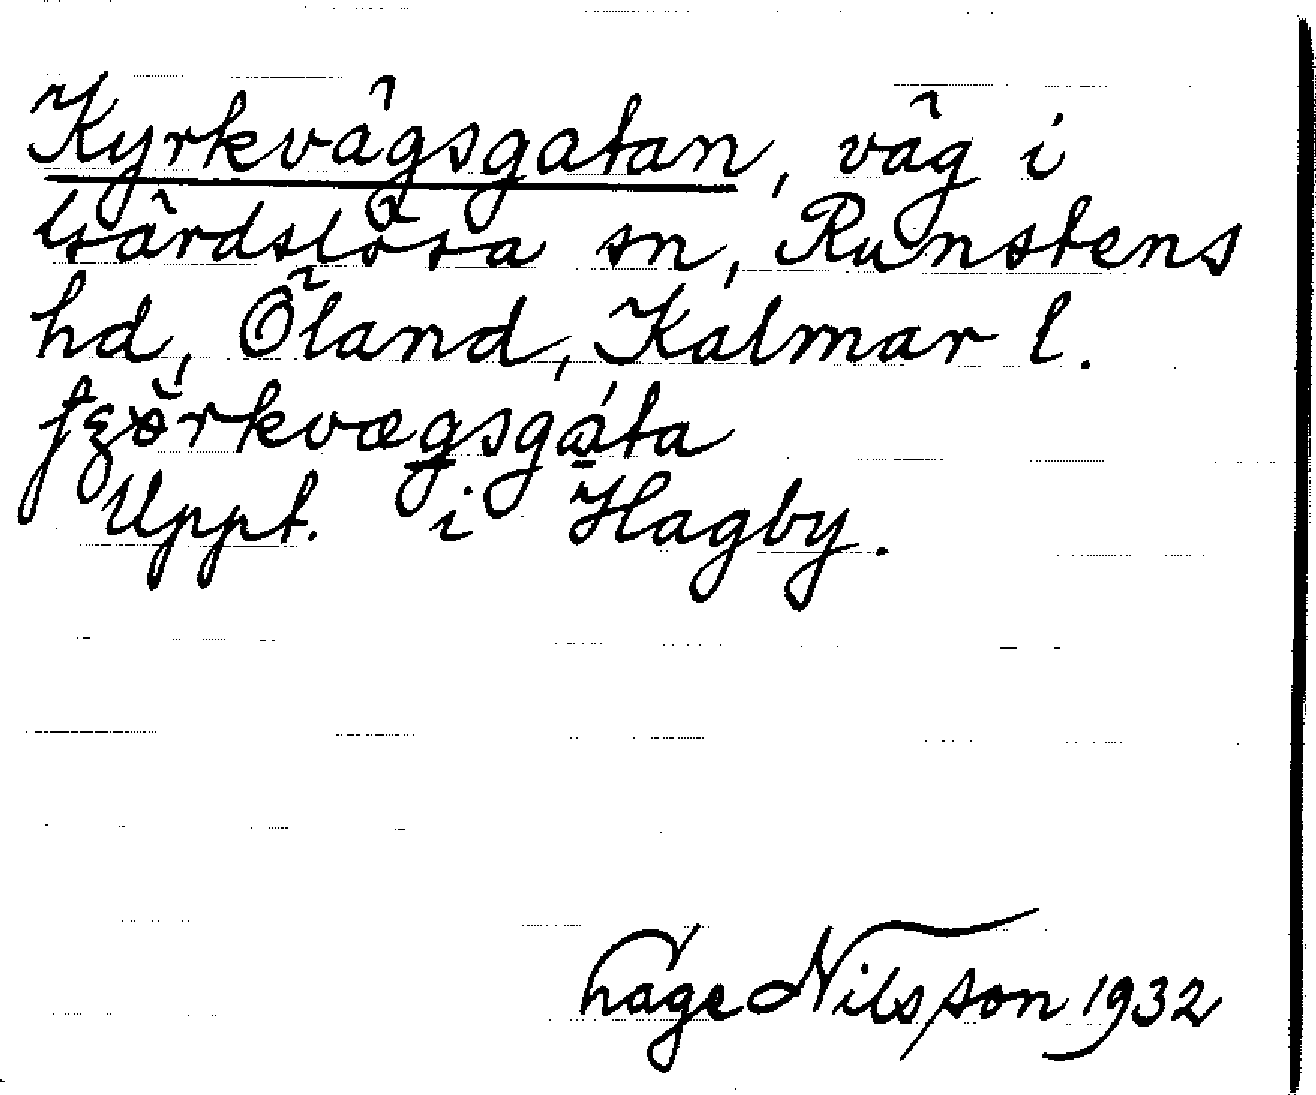 Kyrkvägsgatan, väg i
Gärdslösa sn, Runstens
hd, Öland, Kalmar l.
Uppt. i Hagby.
Tage Nilsson 1932